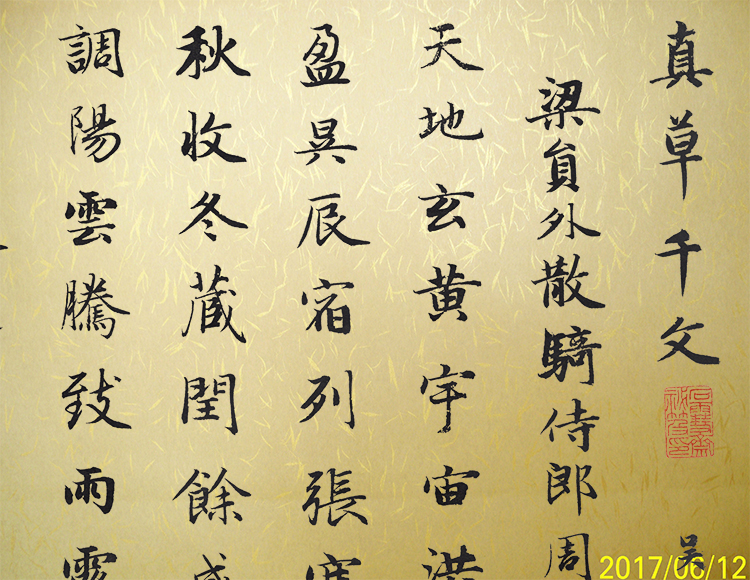 真草千文 吴
梁員外散騎侍郎周
天地玄黄宇宙洪
盈昃辰宿列張寒
秋收冬藏閏餘成
調陽雲騰致雨露
2017/06/12